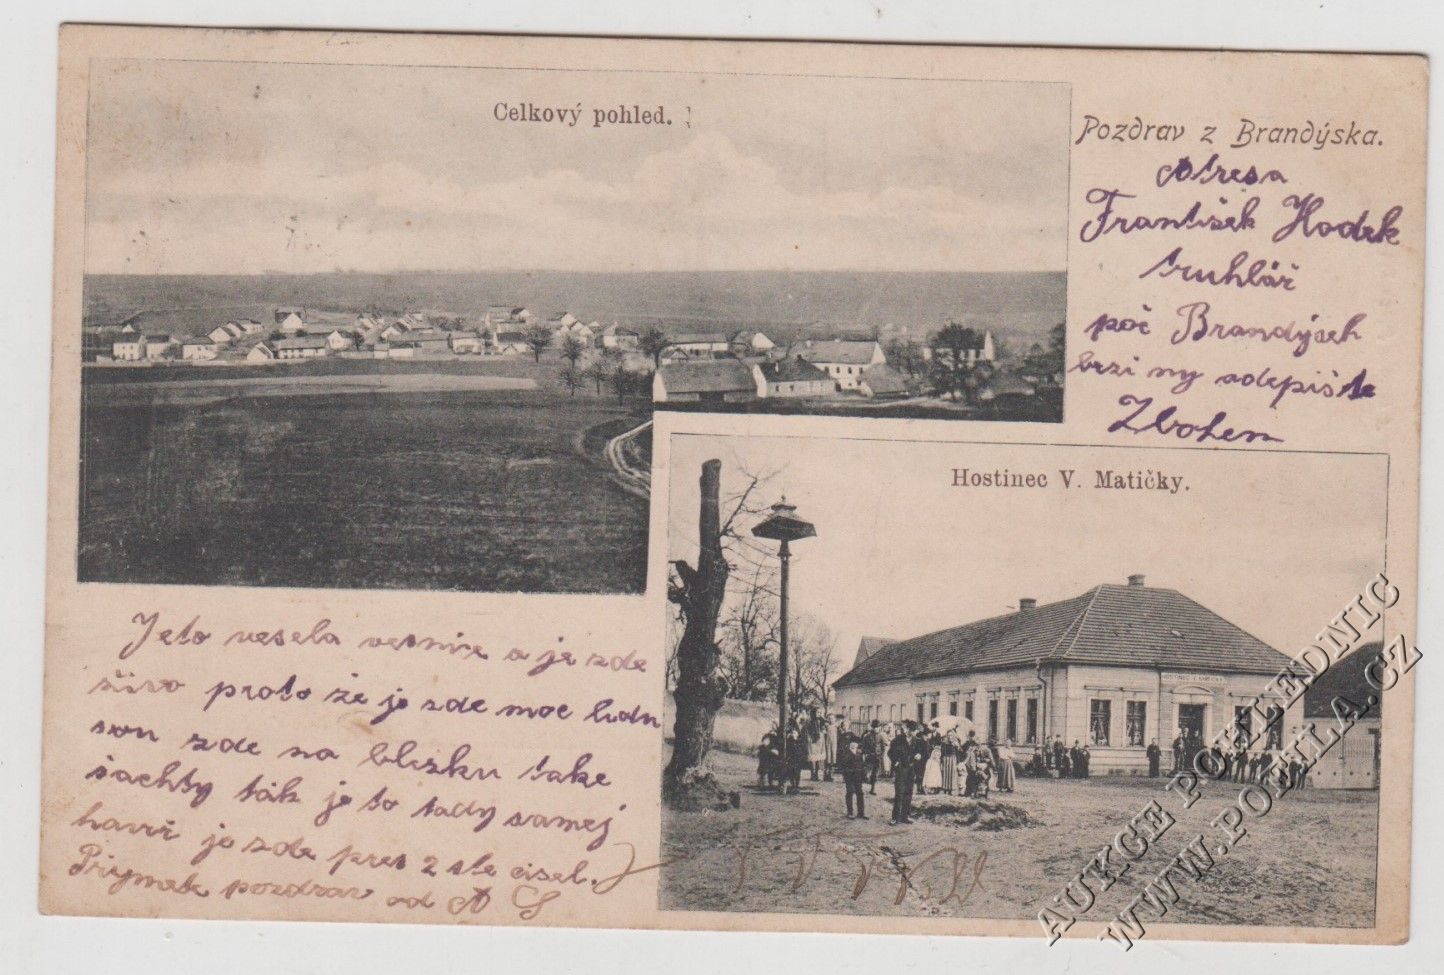 Celkový pohled.
Pozdrav z Brandýska.
Atresa
František Hodek
truhlář
poč Brandýseh
brzi ny odepište
Zbohem
Hostinec V. Matičky.
HOSTINEC V. MATIČKY
Jeto vesela vesnice a je zde
živo proto že je zde moc lidu
sou zde na blizku take
šachty ták je to tady samej
havíř je zde pres 2 ste cisel.
Přijmete pozdrav od A S
AUKCE POHLEDNIC
WWW.POFILA.CZ